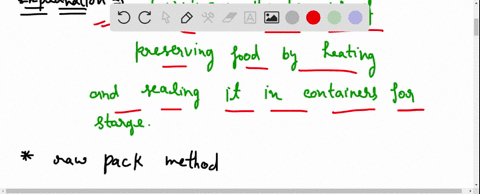 Explanation
preserving food by heating
and sealing it in containers for
starge.
* raw pack method